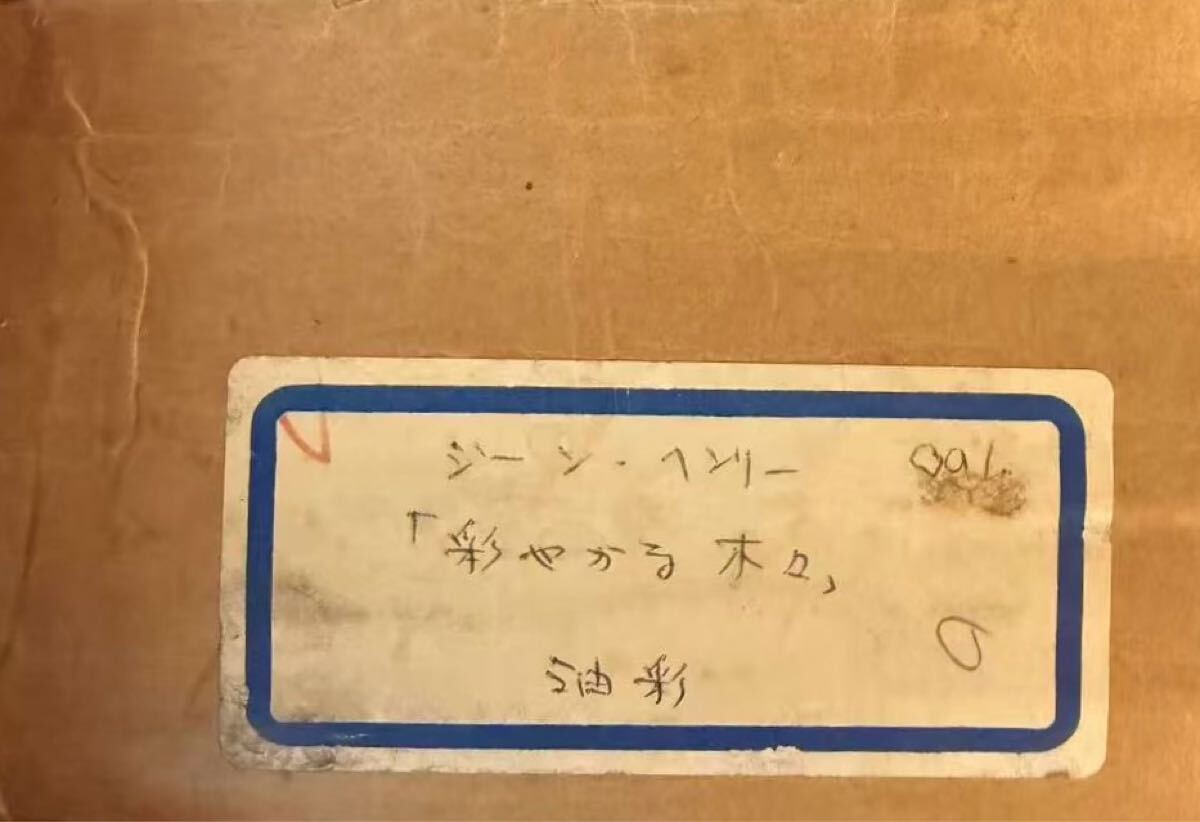 ジーン・ヘンリー
「彩やかる木々」
油彩